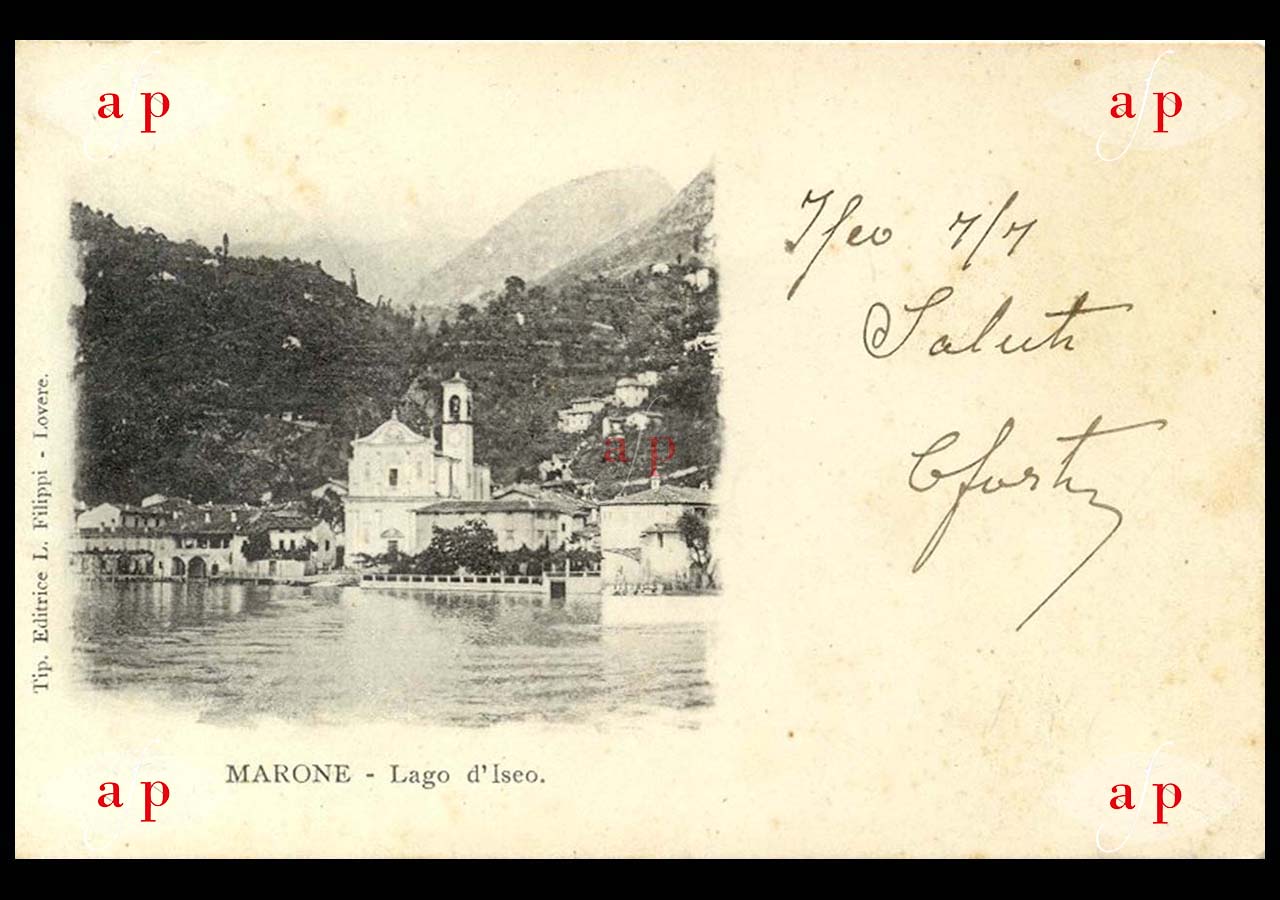 a p
a f p
Iseo 7/7
Saluti
Tip. Editrice L. Filippi - Lovere.
a p
MARONE - Lago d'Iseo.
a p
a f p